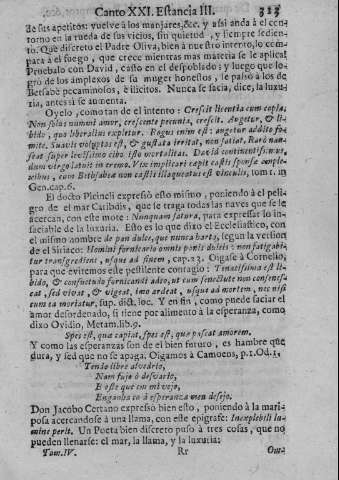 Canto XXI. Estancia III. 313
de sus apetitos: vuelve à los manjares, &c. y assi anda à el con-
torno en la rueda de sus vicios, sin quietud, y siempre sedien-
to. Que discreto el Padre Oliva, bien à nuestro intento, lo com-
para à el fuego, que crece mientras mas materia se le aplica!
Pruebalo con David, casto en el despoblado; y luego que lo-
gro de los amplexos de su muger honestos, le passò à los de
Bersabè pecaminosos, è ilicitos. Nunca se sacia, dice, la luxu-
ria, antes si se aumenta.
Oyelo, como tan de el intento: Crescit licentia cum copia,
Non solus nummi amor, crescente pecunia, crescit. Augetur, & li-
bido, qua liberalius expletur. Rogus enim est: augetur addito fo-
mite. Suavis voluptas est, & gustata irritat, non satiat. Rarò
super levissimo cibo ista mortalitas. David continentissimus,
dum virgultavit in eremo. Vix implicari capit castis sponsæ ample-
xibus, cum Bethsabeæ non castis illaqueatus est vinculis, tom. 1. in
Gen. cap. 6.
El docto Picineli expressò esto mismo, poniendo à el peli-
gro de el mar Caribdis, que se traga todas las naves que se le
acercan, con este mote: Nunquam satura, para expressar lo in-
saciable de la luxuria. Esto es lo que dixo el Ecclesiastico, con
el mismo nombre de pan dulce, que nunca harta, segun la version
de el Siriaco: Homini fornicario omnis panis dulcis: non fatigabi-
tur transgrediens, usque ad finem, cap. 23. Oigase à Cornelio,
para que evitemos este pestilente contagio: Tenacissima est li-
bido, & consuetudo fornicandi adeo, ut cum senectute non consenes-
cat, sed vivat, & vigeat, imo ardeat, usque ad mortem, nec nisi
cum ea moriatur, sup. dict. loc. Y en fin, como puede saciar el
amor desordenado, si tiene por alimento à la esperanza, como
dixo Ovidio, Metam. lib. 9.
Spes est, que capiat, spes est, que pascat amorem.
Y como las esperanzas son de el bien futuro, es hambre que
dura, y sed que no se apaga. Oigamos à Camoens, p. 1. Od. 1.
Tenho libre alvedrio,
Nam fujo ò desvario,
B oste que em mi vejo,
Enganha co à esperanza meu desejo.
Don Jacobo Certano expressò bien esto, poniendo à la mari-
posa acercandose à una llama, con este epigrafe: Inexplebili lu-
mine perit. Un Poeta bien discreto puso à tres cosas, que no
pueden llenarse: el mar, la llama, y la luxuria:
Tom. IV. Rr Om-